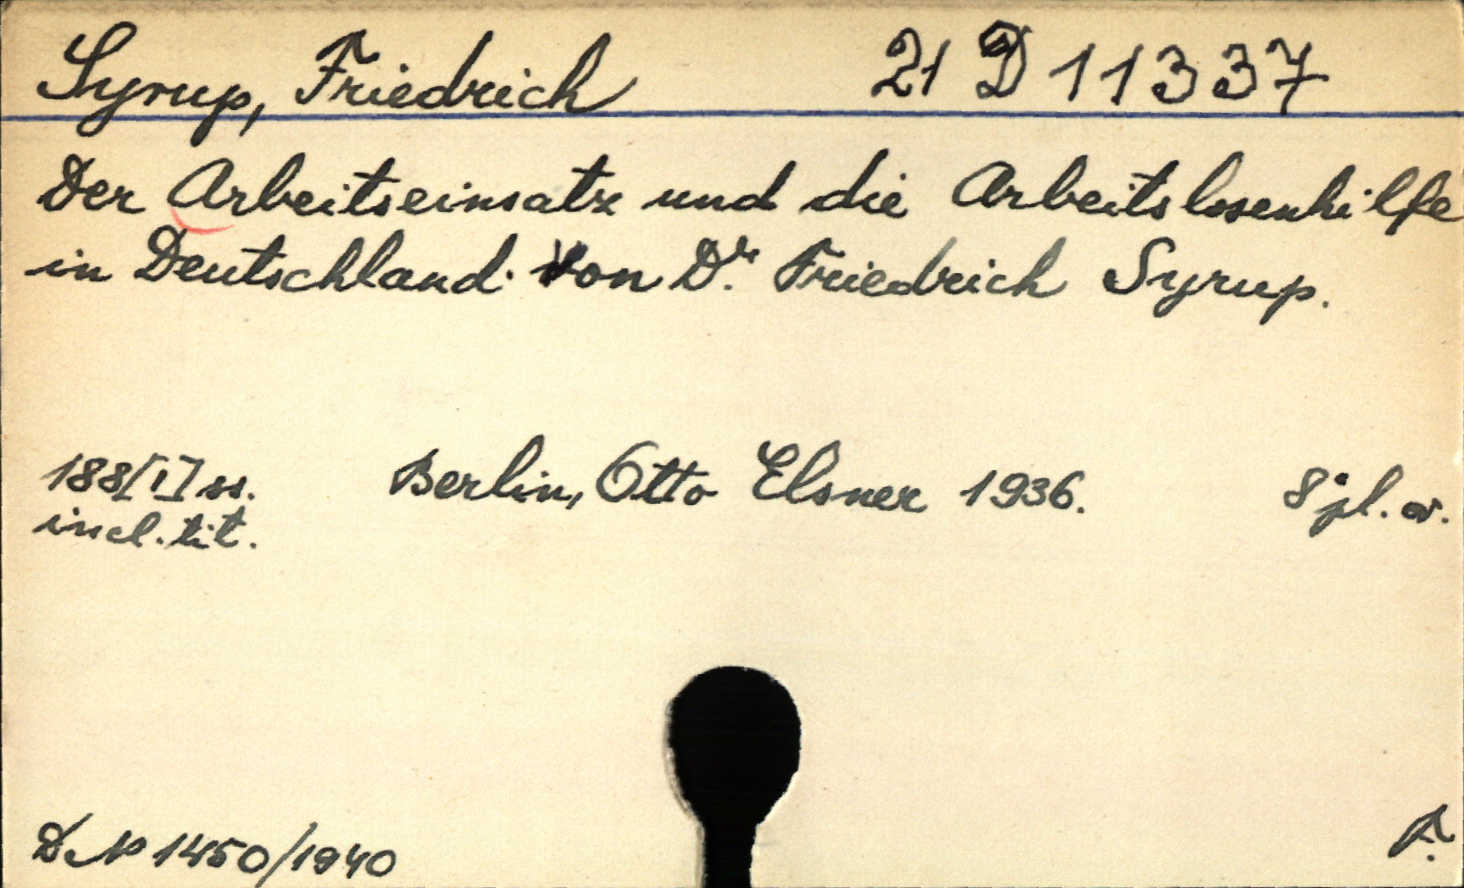 Syrup, Friedrich 21 D 11337
Der Arbeitseinsatz und die Arbeitslosenhilfe
in Deutschland. Von Dr. Friedrich Syrup.
188[1] ss. Berlin, Otto Elsner 1936. 8°
incl. tit.
1450/1940